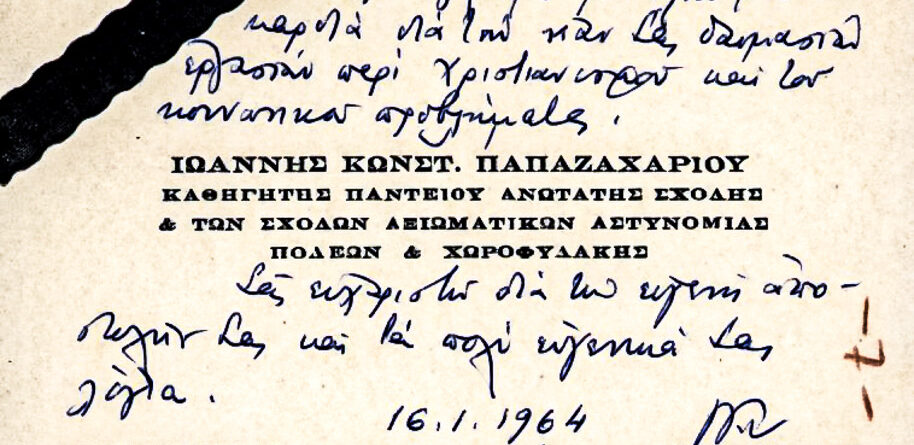 διὰ τὴν νέαν Σας θαυμασίαν
ἐργασίαν περὶ Χριστιανισμοῦ καὶ τοῦ
κοινωνικοῦ προβλήματος.
ΙΩΑΝΝΗΣ ΚΩΝΣΤ. ΠΑΠΑΖΑΧΑΡΙΟΥ
ΚΑΘΗΓΗΤΗΣ ΠΑΝΤΕΙΟΥ ΑΝΩΤΑΤΗΣ ΣΧΟΛΗΣ
& ΤΩΝ ΣΧΟΛΩΝ ΑΞΙΩΜΑΤΙΚΩΝ ΑΣΤΥΝΟΜΙΑΣ
ΠΟΛΕΩΝ & ΧΩΡΟΦΥΛΑΚΗΣ
Σᾶς εὐχαριστῶ διὰ τὴν εὐγενῆ ἀπο-
στολήν Σας καὶ τὰ πολὺ εὐγενικά Σας
λόγια.
-7-
16.1.1964